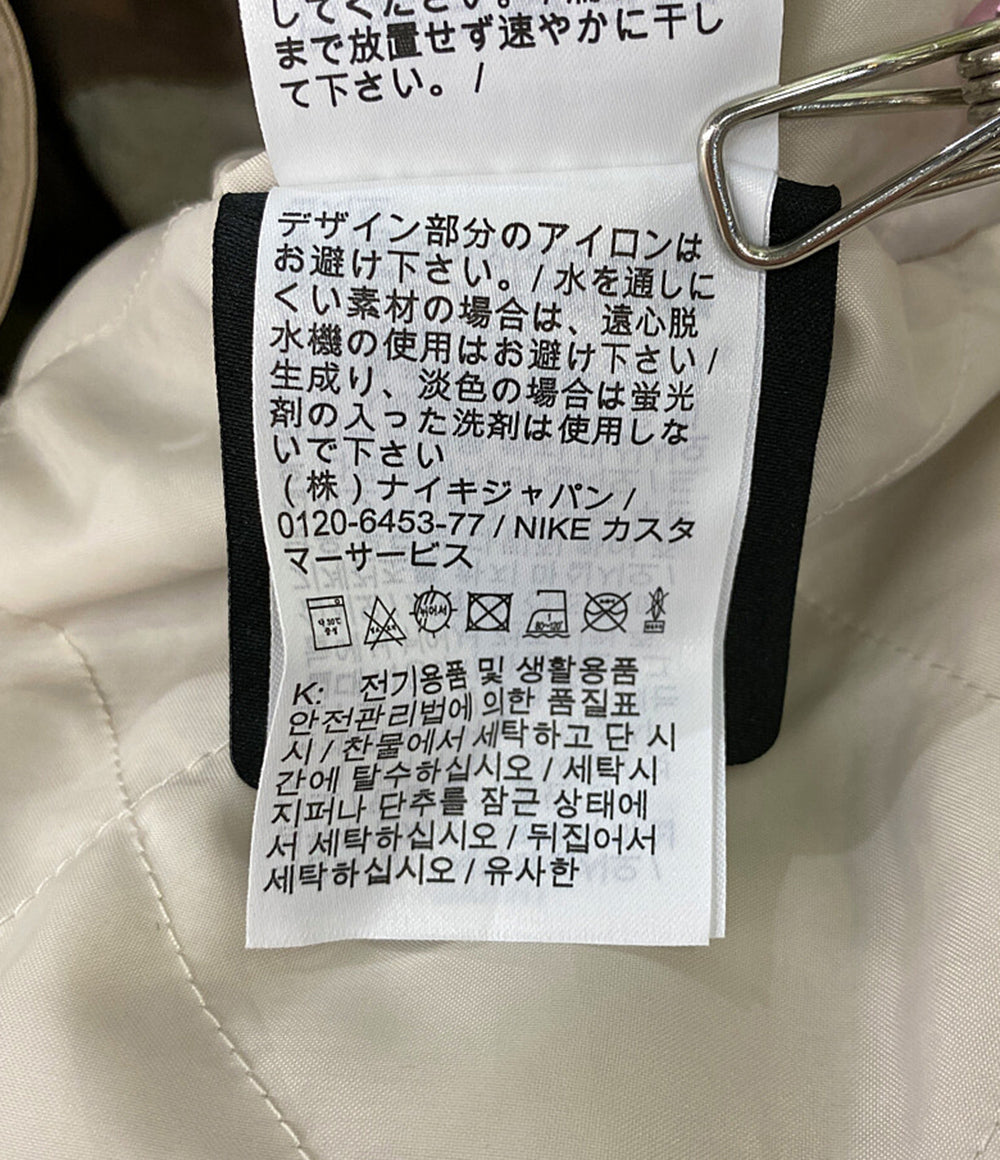 まで放置せず速やかに干し
て下さい。/
デザイン部分のアイロンは
お避け下さい。/ 水を通しに
くい素材の場合は、遠心脱
水機の使用はお避け下さい /
生成り、淡色の場合は蛍光
剤の入った洗剤は使用しな
いで下さい
(株)ナイキジャパン /
0120-6453-77 / NIKE カスタ
マーサービス
약 30℃
중성
80~120℃
K: 전기용품 및 생활용품
안전관리법에 의한 품질표
시 / 찬물에서 세탁하고 단 시
간에 탈수하십시오 / 세탁시
지퍼나 단추를 잠근 상태에
서 세탁하십시오 / 뒤집어서
세탁하십시오 / 유사한